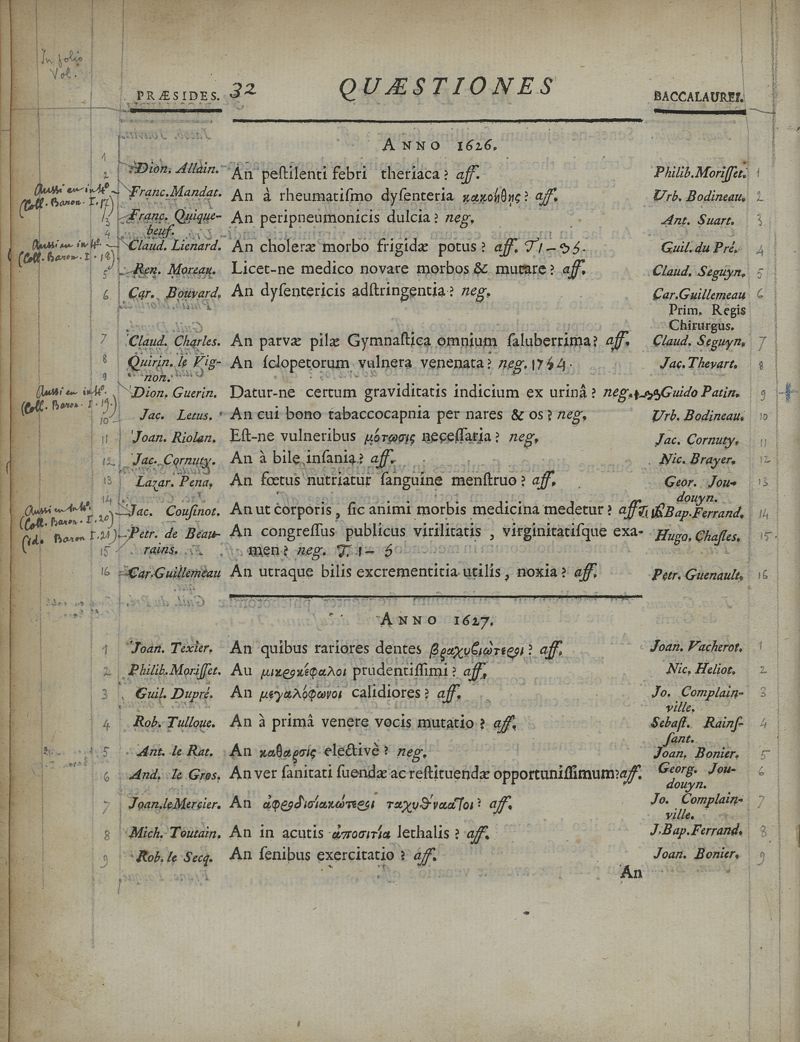 In folio
Vol.
PRÆSIDES. 32 QUÆSTIONES BACCALAUREI.
ANNO 1626.
1 Dion. Allain. An peſtilenti febri theriaca? aff. Philib. Moriſſet. 1
2 Franc. Mandat. An à rheumatiſmo dyſenteria κακοήθης? aff. Urb. Bodineau. 2
Aussi en in 4º
(Coll. Baron. T. 17)
3 Franç. Quique- An peripneumonicis dulcia? neg. Ant. Suart. 3
beuf.
4 Claud. Lienard. An choleræ morbo frigidæ potus? aff. Guil. du Pré. 4
Aussi en in 4º.
(Coll. Baron. T. 18)
5 Ren. Moreau. Licet-ne medico novare morbos & mutare? aff. Claud. Seguyn. 5
6 Car. Bouvard. An dyſentericis adſtringentia? neg. Car. Guillemeau 6
Prim. Regis
Chirurgus.
7 Claud. Charles. An parvæ pilæ Gymnaſtica omnium ſaluberrima? aff. Claud. Seguyn. 7
8 Quirin. le Vig- An ſclopetorum vulnera venenata? neg. Jac. Thevart. 8
non.
9 Dion. Guerin. Datur-ne certum graviditatis indicium ex urinâ? neg. Guido Patin. 9
Aussi en in 4º.
(Coll. Baron. T. 19)
10 Jac. Letus. An cui bono tabaccocapnia per nares & os? neg. Urb. Bodineau. 10
11 Joan. Riolan. Eſt-ne vulneribus μότωσις neceſſaria? neg. Jac. Cornuty. 11
12 Jac. Cornuty. An à bile inſania? aff. Nic. Brayer. 12
13 Lazar. Pena. An fœtus nutriatur ſanguine menſtruo? aff. Geor. Jou- 13
douyn.
14 Jac. Couſinot. An ut corporis, ſic animi morbis medicina medetur? aff. J. Bap. Ferrand. 14
Aussi en in 4º.
(Coll. Baron. T. 20)
15 Petr. de Beau- An congreſſus publicus virilitatis, virginitatiſque exa- Hugo. Chaſles. 15
(id. Baron T. 21)
rains. men? neg.
16 Car. Guillemeau An utraque bilis excrementitia utilis, noxia? aff. Petr. Guenault. 16
ANNO 1627.
1 Joan. Texier. An quibus rariores dentes βραχυβιώτεροι? aff. Joan. Vacherot. 1
2 Philib. Moriſſet. Au μικροκέφαλοι prudentiſſimi? aff. Nic. Heliot. 2
3 Guil. Dupré. An μεγαλόφωνοι calidiores? aff. Jo. Complain- 3
ville.
4 Rob. Tulloue. An à primâ venere vocis mutatio? aff. Sebaſt. Rainſ- 4
ſant.
5 Ant. le Rat. An καθαρσις electivè? neg. Joan. Bonier. 5
6 And. le Gros. An ver ſanitati tuendæ ac reſtituendæ opportuniſſimum? aff. Georg. Jou- 6
douyn.
7 Joan. le Mercier. An ἀφροδισιακώτεροι aff. Jo. Complain- 7
ville.
8 Mich. Toutain. An in acutis ἀποσιτία lethalis? aff. J. Bap. Ferrand. 8
9 Rob. le Secq. An ſenibus exercitatio? aff. Joan. Bonier. 9
An